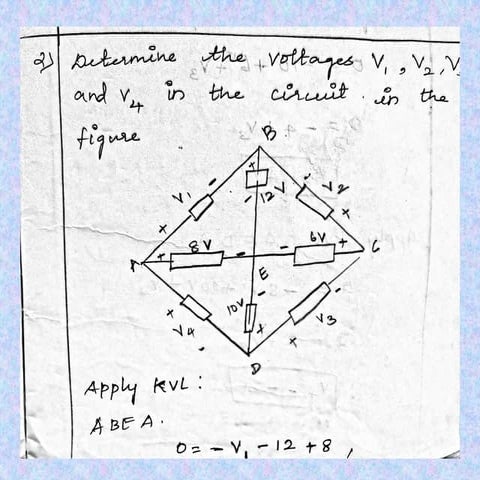 2) Determine the voltages V1, V2, V3
and V4 in the circuit in the
figure
B
V1 + - + - 12 V - V2 +
A + 8V - E - 6V + C
+ V4 - 10V - + + V3 -
D
Apply KVL:
ABEA.
0 = -V1 - 12 + 8,